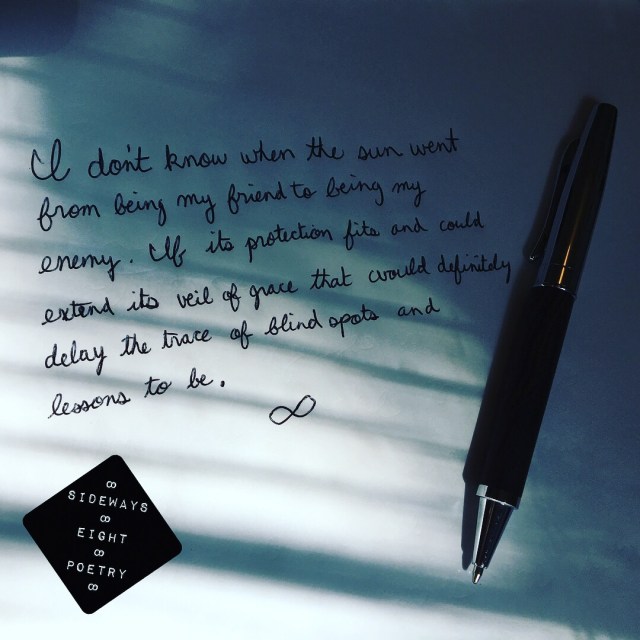 I don't know when the sun went
from being my friend to being my
enemy. If its protection fits and could
extend its veil of grace that would definitely
delay the trace of blind spots and
lessons to be.
∞
∞
SIDEWAYS
∞
EIGHT
∞
POETRY
∞